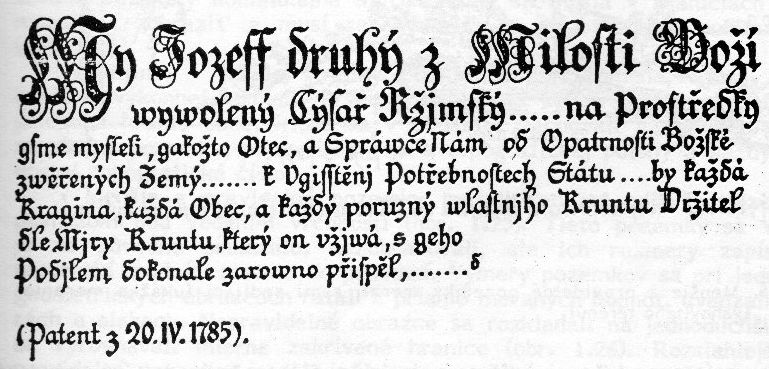 My Jozeff druhý z Milosti Boží
wywolený Cýsař Ržjmský.....na Prostředky
gsme mysleli, gakožto Otec, a Spráwce Nám od Opatrnosti Božské
zwěřených Zemý....... k Vgisstěnj Potřebnostech Státu ....by každá
Kragina, každá Obec, a každý poruzný wlastnjho Kruntu Držitel
dle Mjry Kruntu, který on vžjwá, s geho
Podjlem dokonale zarowno přispěl,.......
(Patent z 20.IV.1785).